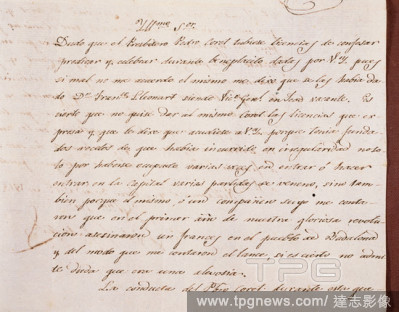 Yllme. Sor.
Dudo que el Presbitero Pedro Coret tubiese licencias de confesar
predicar y celebrar durante beneplacito dadas por V.Y. pues
si mal no me acuerdo el mismo me dixo que se las habia da-
do Dn. Franco. Llonart siendo Vico. Gral. en Sede vacante. Es
cierto que no quise dar al mismo Coret las licencias que ex-
presa y que le dixe que acudiese a V.Y. porque tenia funda-
dos recelos de que habia incurrido en irregularidad no so-
lo por haberse ocupado varias veces en entrar ó hacer
entrar en la Capital varias partidas de veneno, sino tam-
bien porque al mismo ó un compañero suyo me conta-
ron que en el primer año de nuestra gloriosa revolu-
cion asesinaron un frances en el pueblo de Badalona
y del modo que me contaron el lance si es cierto no admi-
te duda que era una alevosia.
La conducta del Pbro Coret durante este gue
TPG
www.tpgnews.com / 達志影像